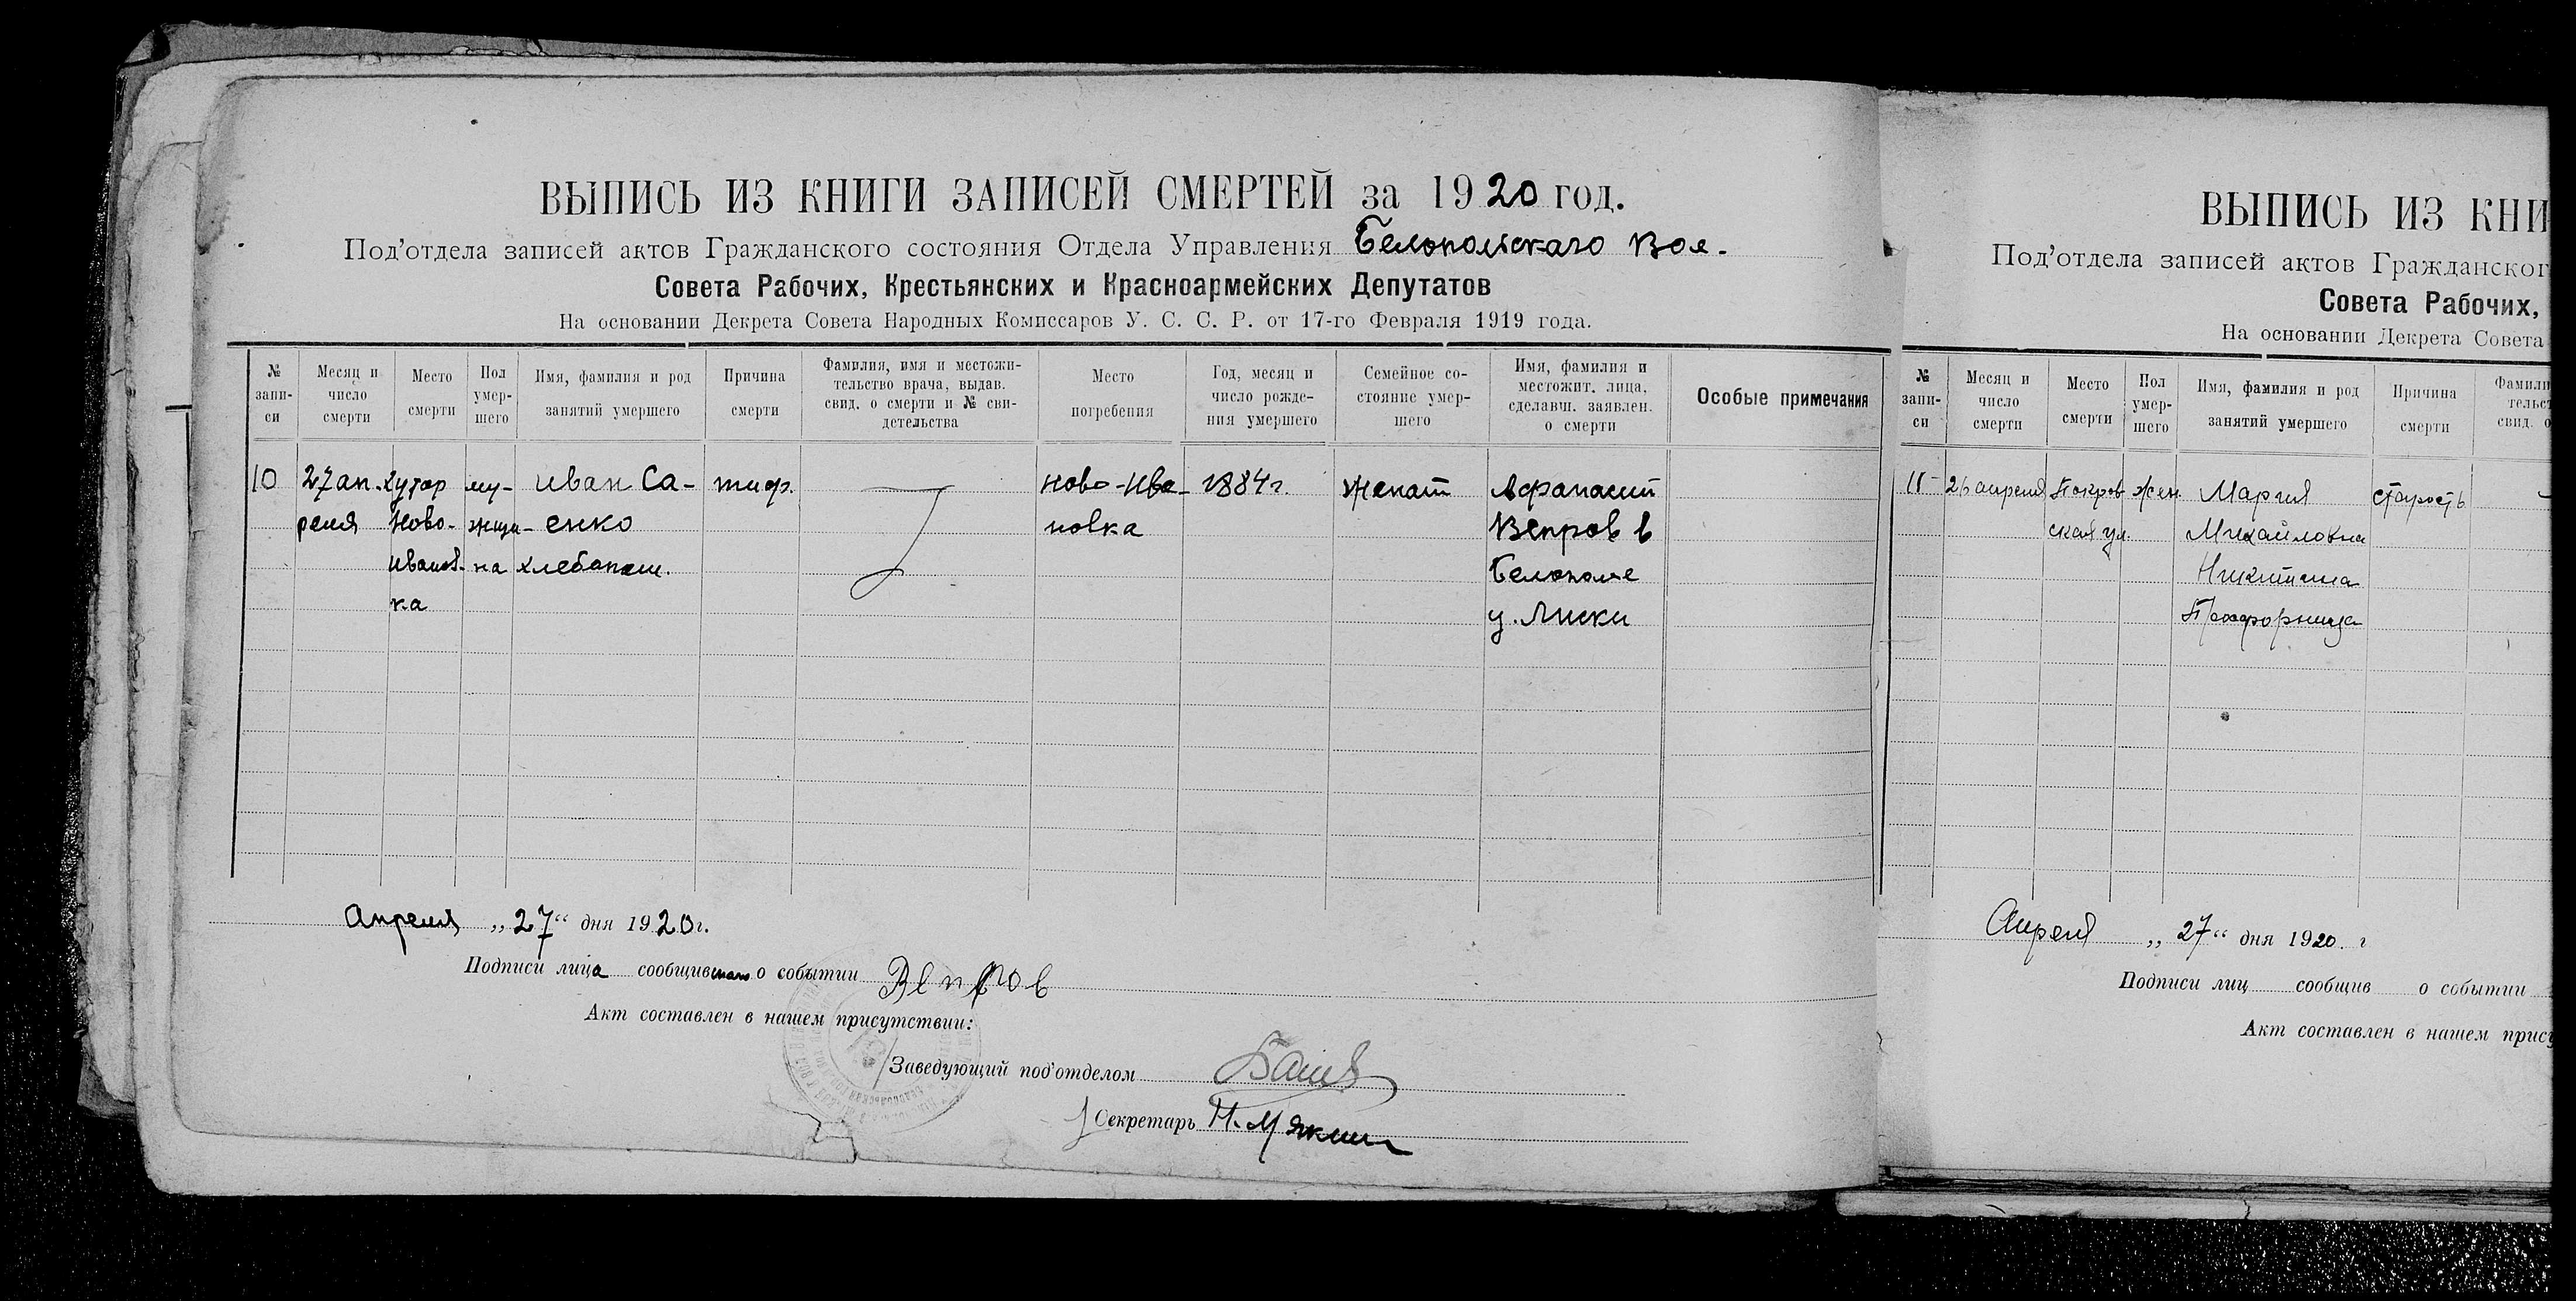 ВЫПИСЬ ИЗ КНИГИ ЗАПИСЕЙ СМЕРТЕЙ за 1920 год.
Под'отдела записей актов Гражданского состояния Отдела Управления Белопольскаго Вол.
Совета Рабочих, Крестьянских и Красноармейских Депутатов
На основании Декрета Совета Народных Комиссаров У. С. С. Р. от 17-го Февраля 1919 года.
№ запи-
си
Месяц и
число
смерти
Место
смерти
Пол
умер-
шего
Имя, фамилия и род
занятий умершего
Причина
смерти
Фамилия, имя и местожи-
тельство врача, выдав.
свид. о смерти и № сви-
детельства
Место
погребения
Год, месяц и
число рожде-
ния умершего
Семейное со-
стояние умер-
шего
Имя, фамилия и
местожит. лица,
сделавш. заявлен.
о смерти
Особые примечания
10
27 ап-
реля
Хутор
Ново-
Иванов-
ка
му-
жщи-
на
Иван Са-
енко
хлебопаш.
тиф.
Ново-Ива-
новка
1884 г.
Женат
Афанасий
Вепров в
Белополе
у. Миски
Апреля „27“ дня 1920 г.
Подписи лица сообщившаго о событии Вепров
Акт составлен в нашем присутствии:
Заведующий под'отделом
Секретарь Н. Мякин
ВЫПИСЬ ИЗ КНИ
Под'отдела записей актов Гражданског
Совета Рабочих,
На основании Декрета Совета
№
запи-
си
Месяц и
число
смерти
Место
смерти
Пол
умер-
шего
Имя, фамилия и род
занятий умершего
Причина
смерти
Фамили
тельст
свид. о
11
26 апреля
Покров
ская ул.
Жен.
Мария
Михайловна
Никитина
старость
Апреля „27“ дня 1920. г
Подписи лиц сообщив о событии
Акт составлен в нашем прису